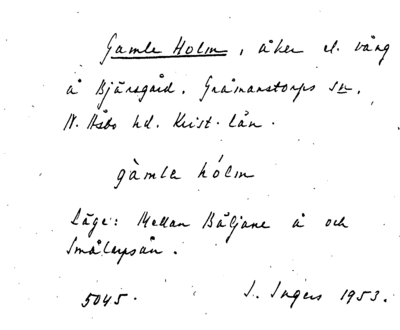 Gamle Holm, åker el. vång
å Bjärsgård. Gråmanstorps sn.
N. Åsbo hd. Krist. län.
gàmla hólm
Läge: Mellan Båljane å och
Smålarpsån.
5045. I. Ingers 1953.